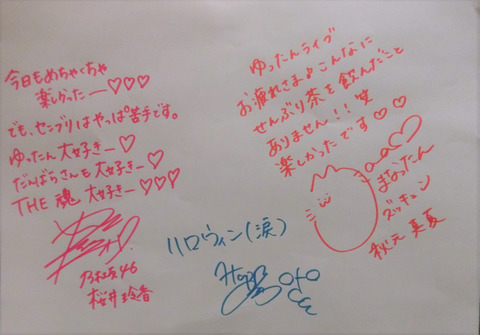 今日もめちゃくちゃ
楽しかったー♡♡♡
でも、センブリはやっぱ苦手です。
ゆったん大好きー♡
だいばらさんも大好きー♡
THE 魂 大好きー♡♡♡
乃木坂46
桜井玲香
ゆったんライブ
お疲れさま♪こんなに
せんぶり茶を飲んだこと
ありません!!笑
楽しかったです♡♡
まなったん
ズッキュン
秋元真夏
ハロウィン(涙)